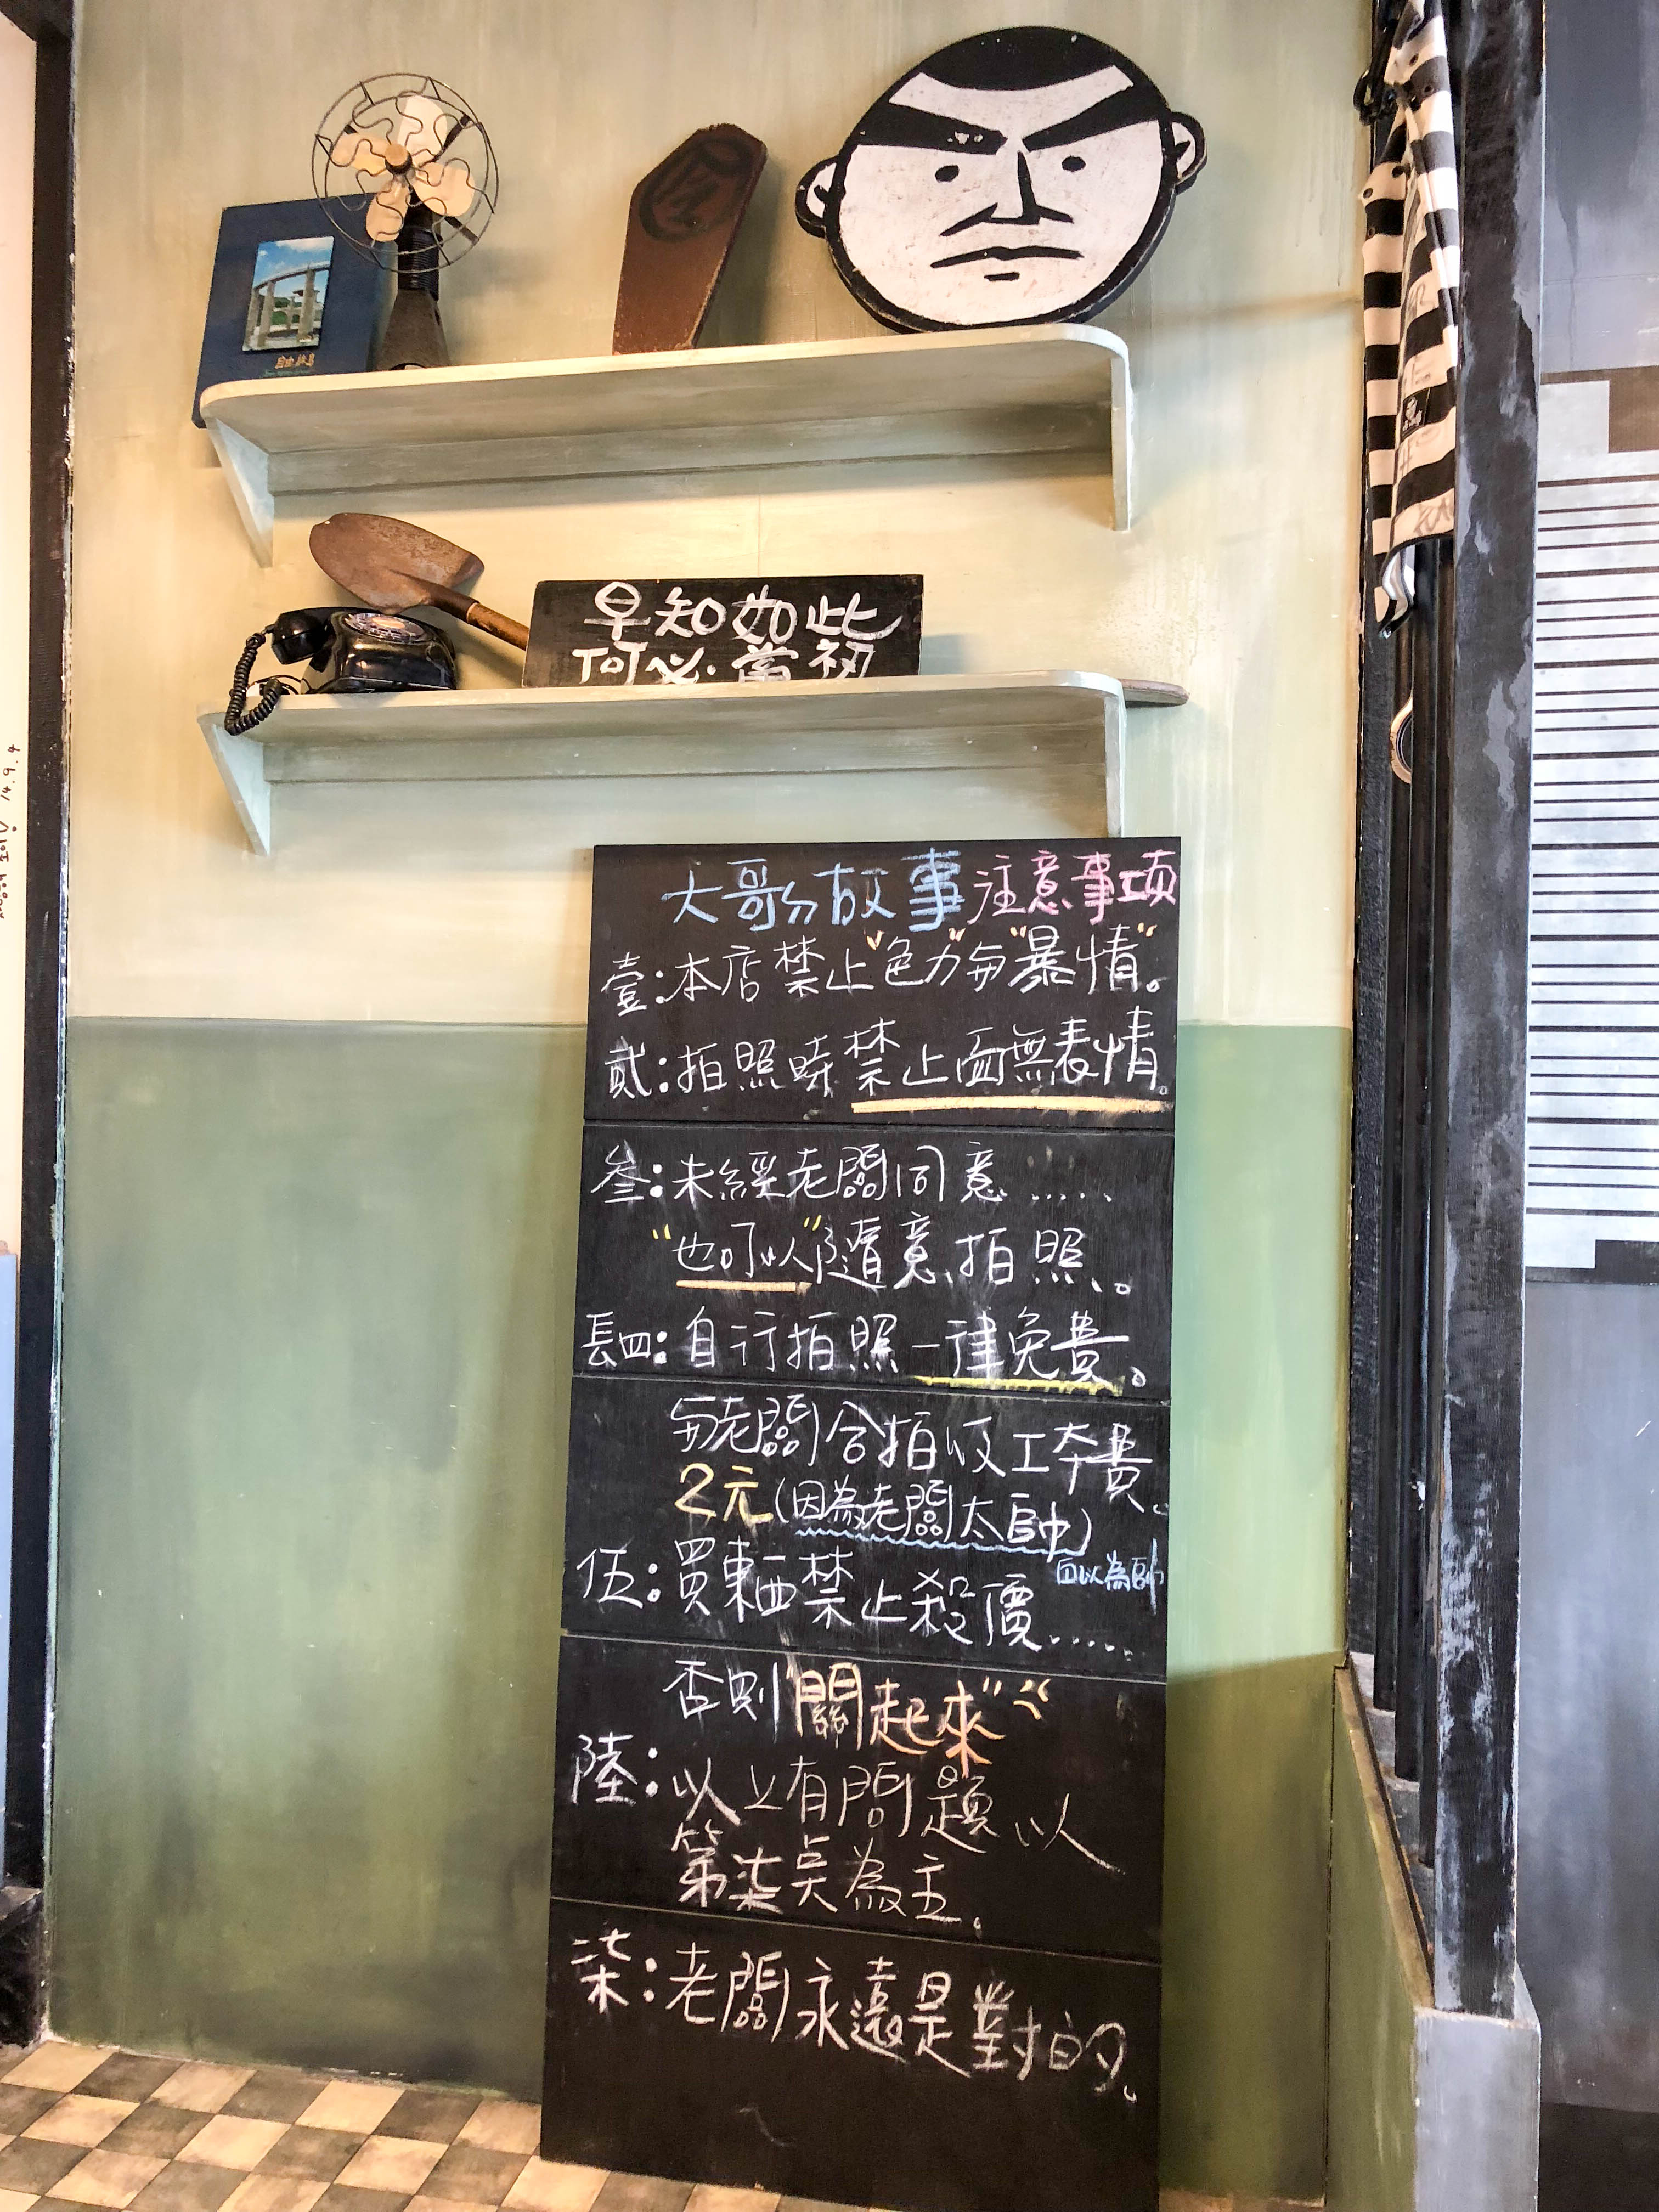 自由綠島
早知如此
何必當初
大哥ㄉ故事注意事項
壹:本店禁止"色力"與"暴情"。
貳:拍照時禁止面無表情。
叁:未經老闆同意.....
"也可以"隨意拍照。
肆:自行拍照一律免費。
與老闆合拍收工本費
2元(因為老闆太帥)
自以為帥
伍:買東西禁止殺價.....
否則"關起來"
陸:以上有問題以
第柒點為主。
柒:老闆永遠是對的。
14.9.4